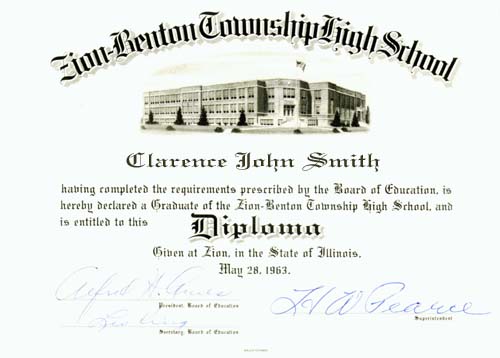 Zion-Benton Township High School
Clarence John Smith
having completed the requirements prescribed by the Board of Education, is
hereby declared a Graduate of the Zion-Benton Township High School, and
is entitled to this Diploma
Given at Zion, in the State of Illinois,
May 28, 1963.
Alfred H.
President, Board of Education
H W Pearce
Superintendent
Secretary, Board of Education